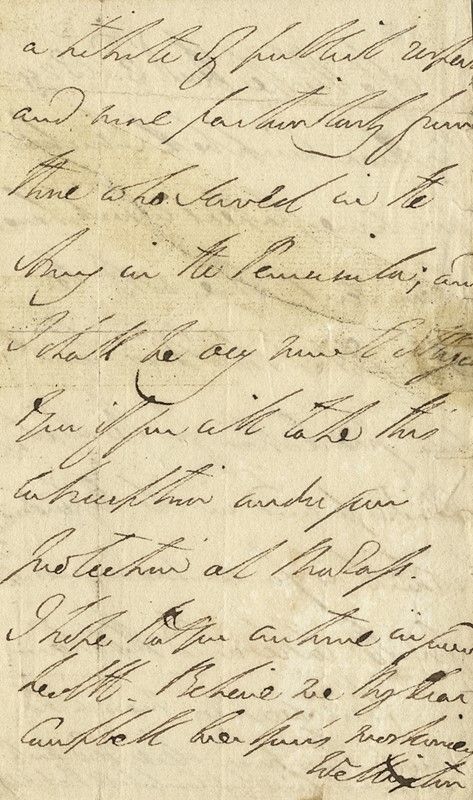 a tribute of publick respect
and more particularly from
those who served in the
Army in the Peninsula; and
I shall be very much obliged
to you if you will take this
subscription under your
Protection at Madras.
I hope that you continue in good
health. Believe me My dear
Campbell Ever yours most sincerely
Wellington